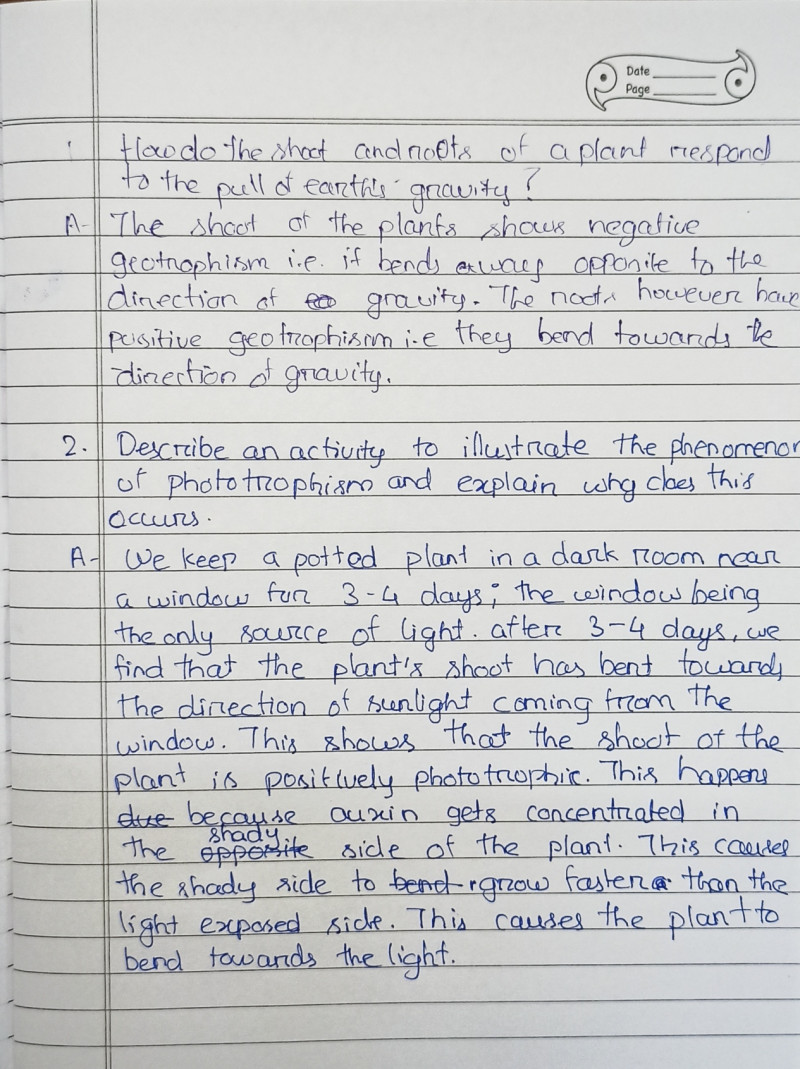 Date
Page
1 How do the shoot and roots of a plant respond
to the pull of earth's gravity?
A- The shoot of the plants shows negative
geotrophism i.e. it bends away opposite to the
direction of gravity. The roots however have
positive geotrophism i.e they bend towards the
direction of gravity.
2. Describe an activity to illustrate the phenomenon
of phototrophism and explain why does this
occurs.
A- We keep a potted plant in a dark room near
a window for 3-4 days; the window being
the only source of light. after 3-4 days, we
find that the plant's shoot has bent towards
the direction of sunlight coming from the
window. This shows that the shoot of the
plant is positively phototrophic. This happens
due because auxin gets concentrated in
shady
the opposite side of the plant. This causes
the shady side to bend grow faster than the
light exposed side. This causes the plant to
bend towards the light.